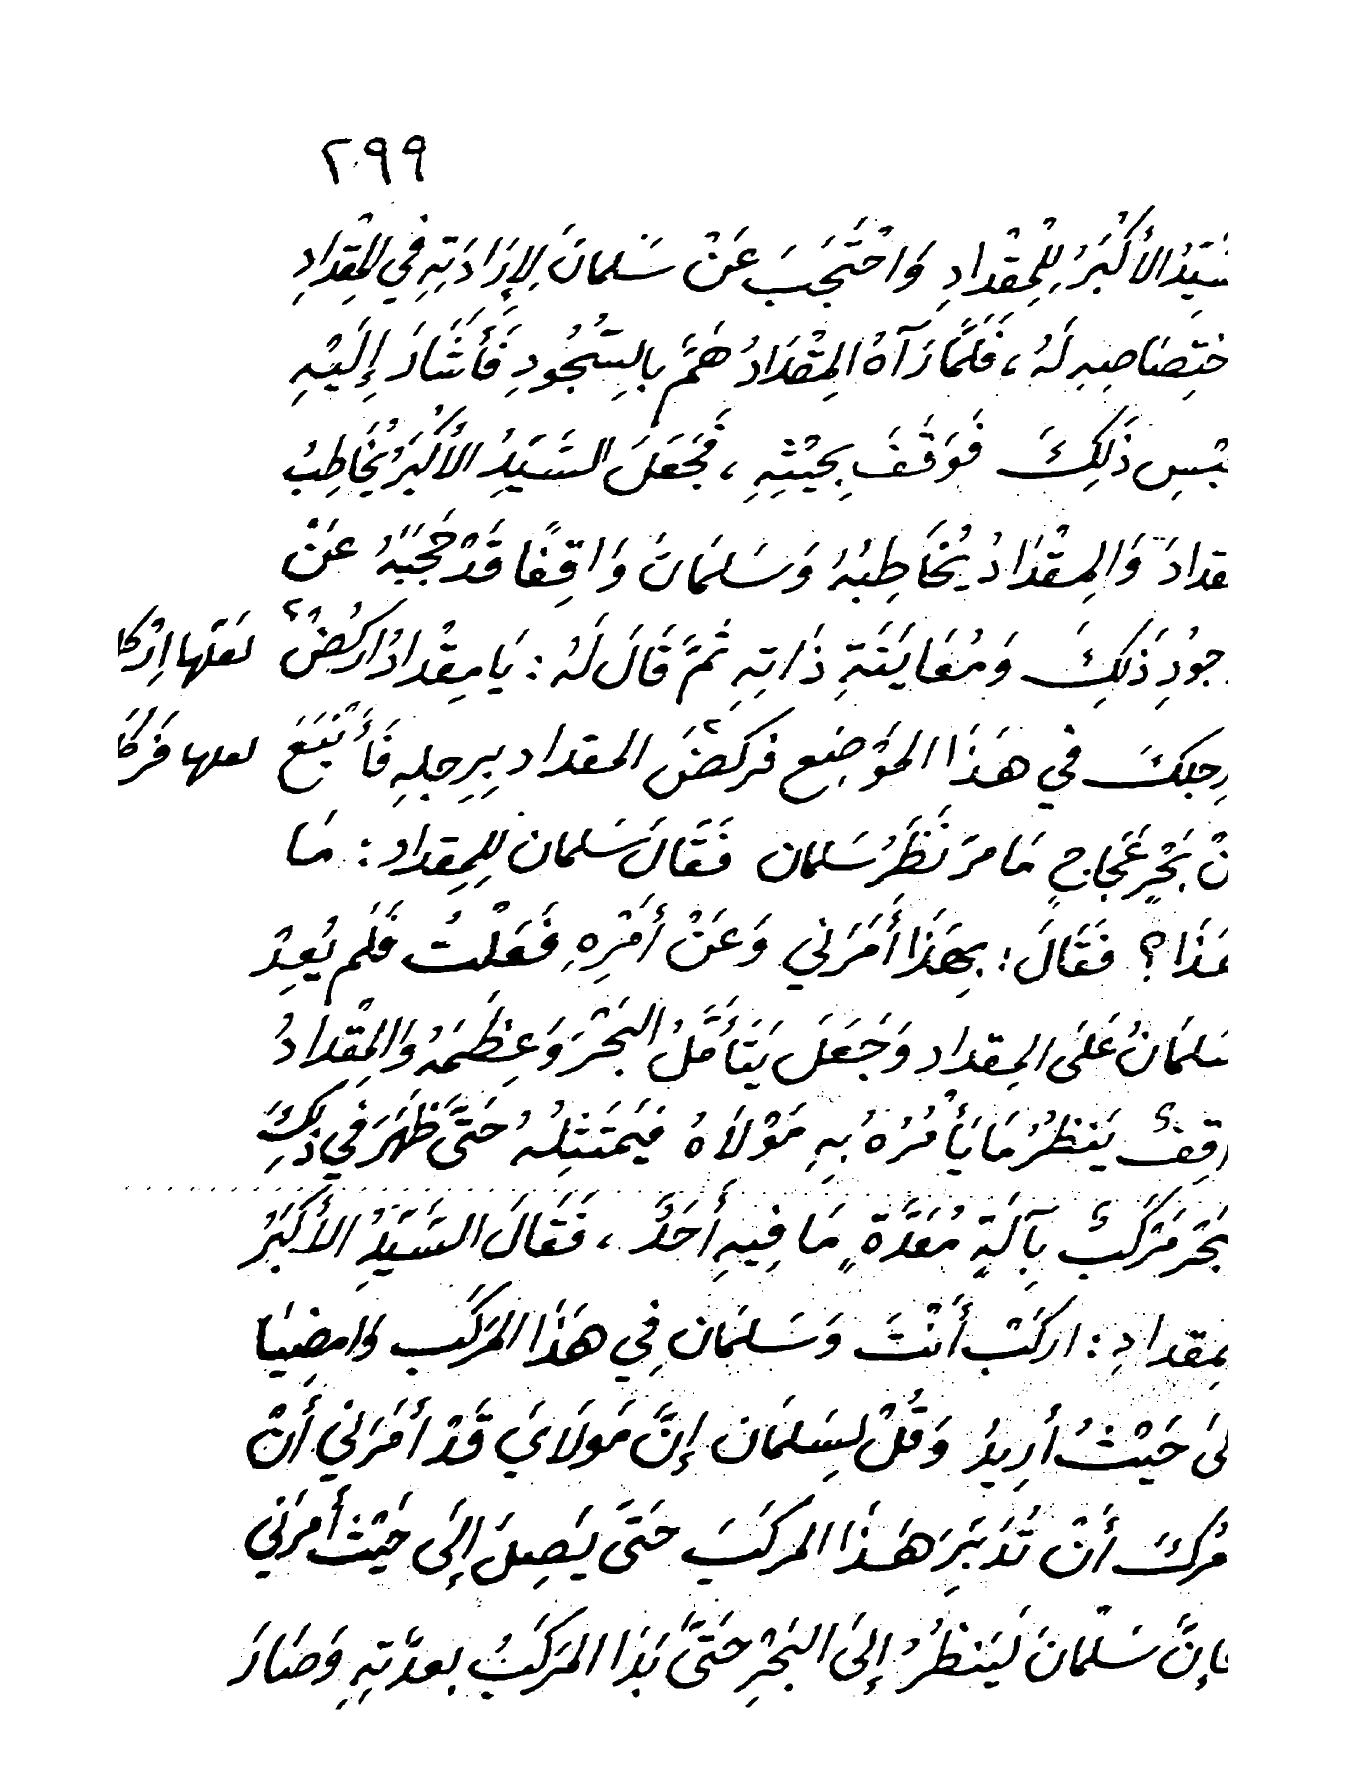 ٢٩٩
سَّيِّدُ الأَكْبَرُ لِلْمِقْدَادِ وَاحْتَجَبَ عَنْ سَلمانَ لِإِرَادَتِهِ فِي المِقْدَادِ
ختِصَاصِهِ لَهُ، فَلَمَّا رَآهُ المِقْدَادُ هَمَّ بِالسُّجُودِ فَأَشَارَ إِلَيْهِ
بْسِ ذَلِكَ فَوَقَفَ بِحَيْثِهِ، فَجَعَلَ السَّيِّدُ الأَكْبَرُ يُخَاطِبُ
قدادَ وَالمِقْدَادُ يُخَاطِبُهُ وَسَلمَانُ وَاقِفًا قَدْ حَجَبَهُ عَنْ
جُودِ ذَلِكَ وَمُعَايَنَةِ ذَاتِهِ ثُمَّ قَالَ لَهُ: يَا مِقْدَادُ ارْكُضْ؟ لَعَلَّها اِرْكا
رِجلكَ فِي هَذَا المَوْضِعِ فركضَ؟ المقداد بِرِجلِهِ فَأَتْبَعَ لعلها فَرَكَا
نْ بَحْرٍ عَجَاجٍ مَا مرَ نَظَرُ سَلمان فَقَالَ سَلمان لِلمِقداد: مَا
هَذَا؟ فَقَالَ: بِهَذَا أَمَرَنِي وَعَنْ أَمْرِهِ فَعَلْتُ فَلَم يُعِدْ
سَلمَانُ عَلَى المِقداد وَجَعَلَ يَتَأَمَّلُ البَحْرَ وَعِظَمَهُ وَالمِقْدَادُ
اقِفٌ يَنظرُ مَا يَأْمُرُهُ بِهِ مَوْلَاهُ فَيَمْتَثِلُهُ حَتَّى ظَهَرَ فِي ذَلِكَ
بَحْرِ مَرْكَبٌ بِآلَةٍ مُعَدَّةٍ مَا فِيهِ أَحَدٌ، فَقَالَ السَّيِّدُ الأَكْبَرُ
لمِقدادِ: اركَبْ أَنْتَ وَسَلمَان فِي هَذَا المَركَب وَامضِيَا
لَى حَيْثُ أُرِيدُ وَقُلْ لِسَلمَان إِنَّ مَولَايَ قَدْ أَمَرَنِي أَنْ
مُركَ أَنْ تُدَبِّرَ هَذَا المركَبَ حَتَّى يَصِلَ إِلَى حَيْثُ أَمرَنِي
فَإِنَّ سَلْمَانَ لَيَنظُرُ إِلَى البَحْرِ حَتَّى بَدَا المَركَبُ بعدَّتِهِ وَصَارَ